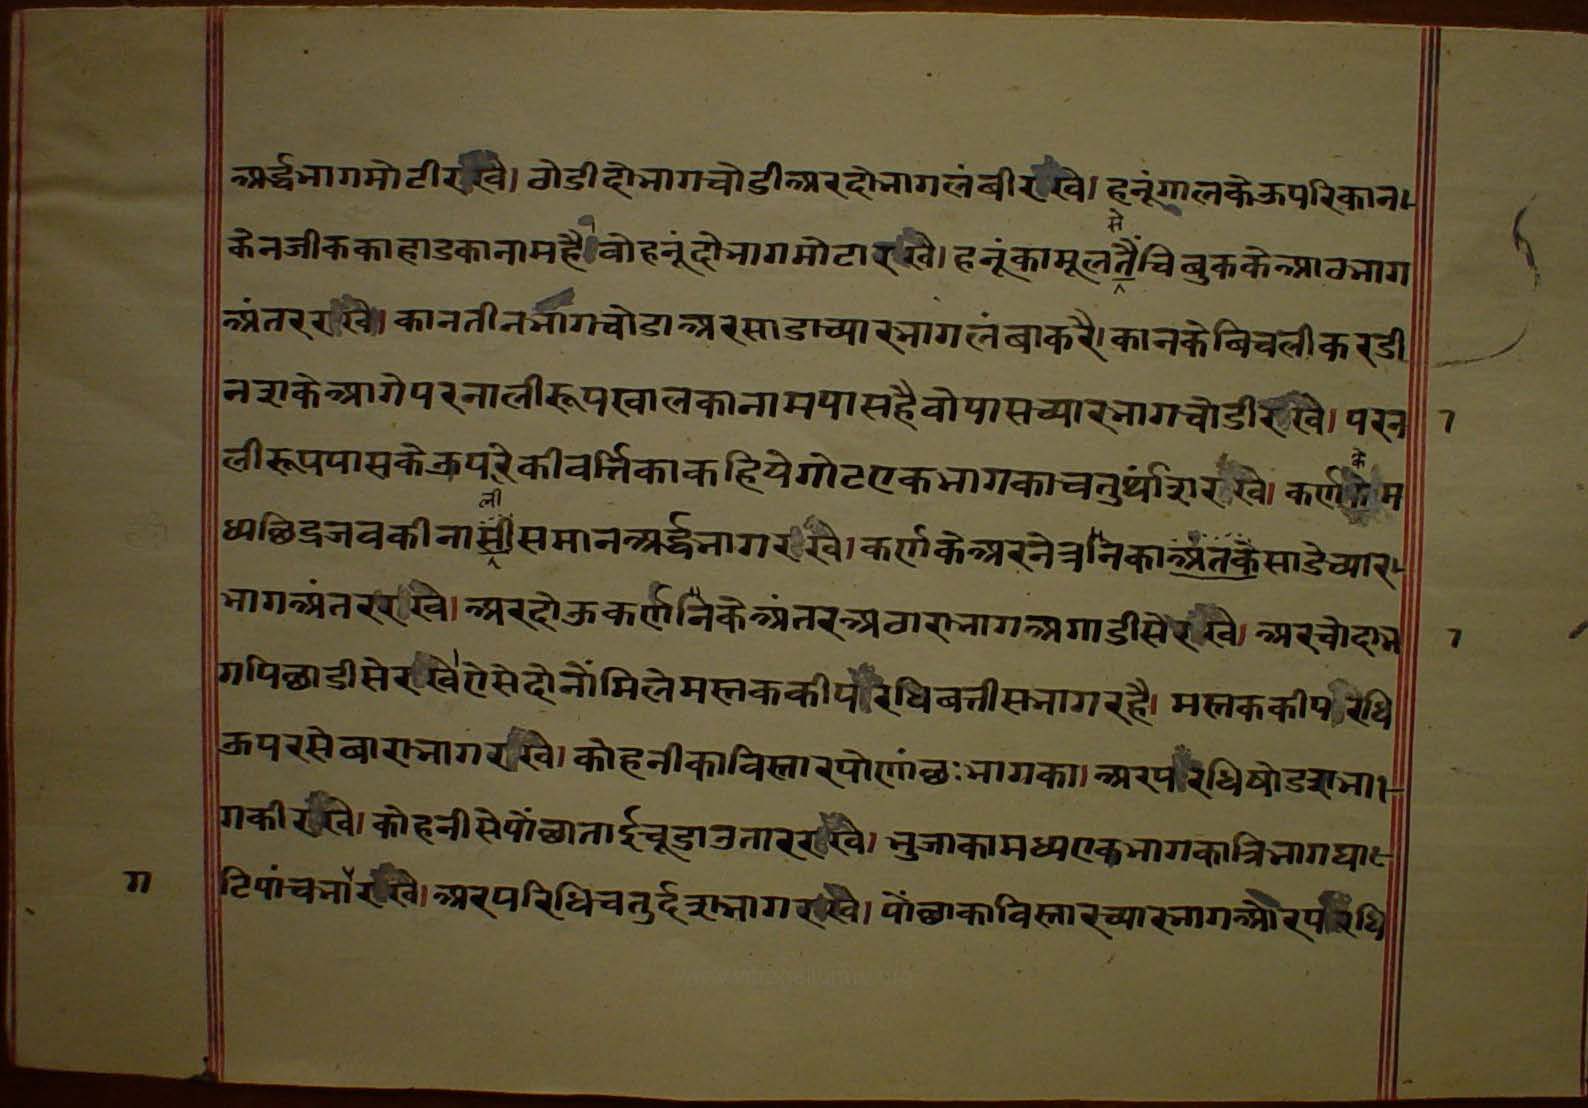 अर्द्धभागमोटीरखे। ठोडीदोभागचोडीअरदोभागलंबीरखे। हनूंगालकेऊपरिकान।
केनजीककाहाडकानामहै।वोहनूंदोभागमोटारखै। हनूंकामूलतैंसेचिबुककेआठभाग
अंतररखै। कानतीनभागचोडाअरसाडाच्यारभागलंबाकरै। कानकेबिचलीकरडी
नशकेआगेपरनालीरूपखालकानामपासहैवोपासच्यारभागचोडीरखै। परन
लीरूपपासकेऊपरेकीवर्त्तिकाकहियेगोटएकभागकाचतुर्थांशरखे। कर्णकेम
ध्यछिद्रजवकीनालीसमानअर्द्धभागरखे। कर्णकेअरनेत्रनिकाअंतकैसाडेच्यार।
भागअंतररखे। अरदोऊकर्णनिकेअंतरअठाराभागअगाडीसेरखे। अरचोदाभ
गपिछाडीसेरखेऐसेदोनोंमिलेमस्तककीपरिधिबत्तीसभागरहै। मस्तककीपरिधि
ऊपरसेबाराभागराखे। कोहनीकाविस्तारपोणांछःभागका। अरपरिधिषोडशभा।
गकीरखे। कोहनीसेपोंछाताईचूडाउताररखै। भुजाकामध्यएकभागकात्रिभागघा।
टिपांचभारखे। अरपरिधिचतुर्दशभागरखै। पोंछाकाविस्तारच्यारभागओरपरिधि
ग